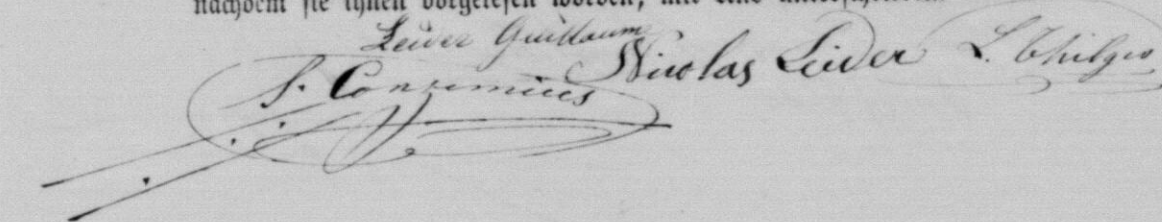 nachdem sie ihnen vorgelesen worden, mit uns unterschrieben.
Leider Guillaume
Nicolas Leider L. Thilges